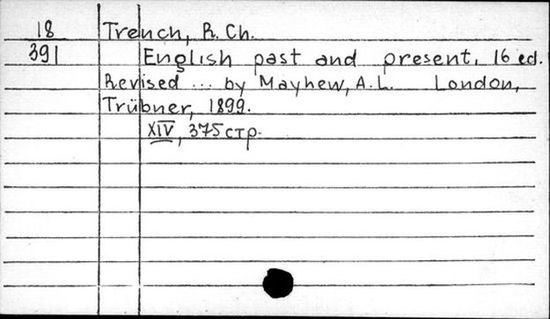 18 Trench, R. Ch.
391 English past and present. 16 ed.
Revised ... by Mayhew, A. L. London,
Trübner, 1899.
XIV, 375 стр.